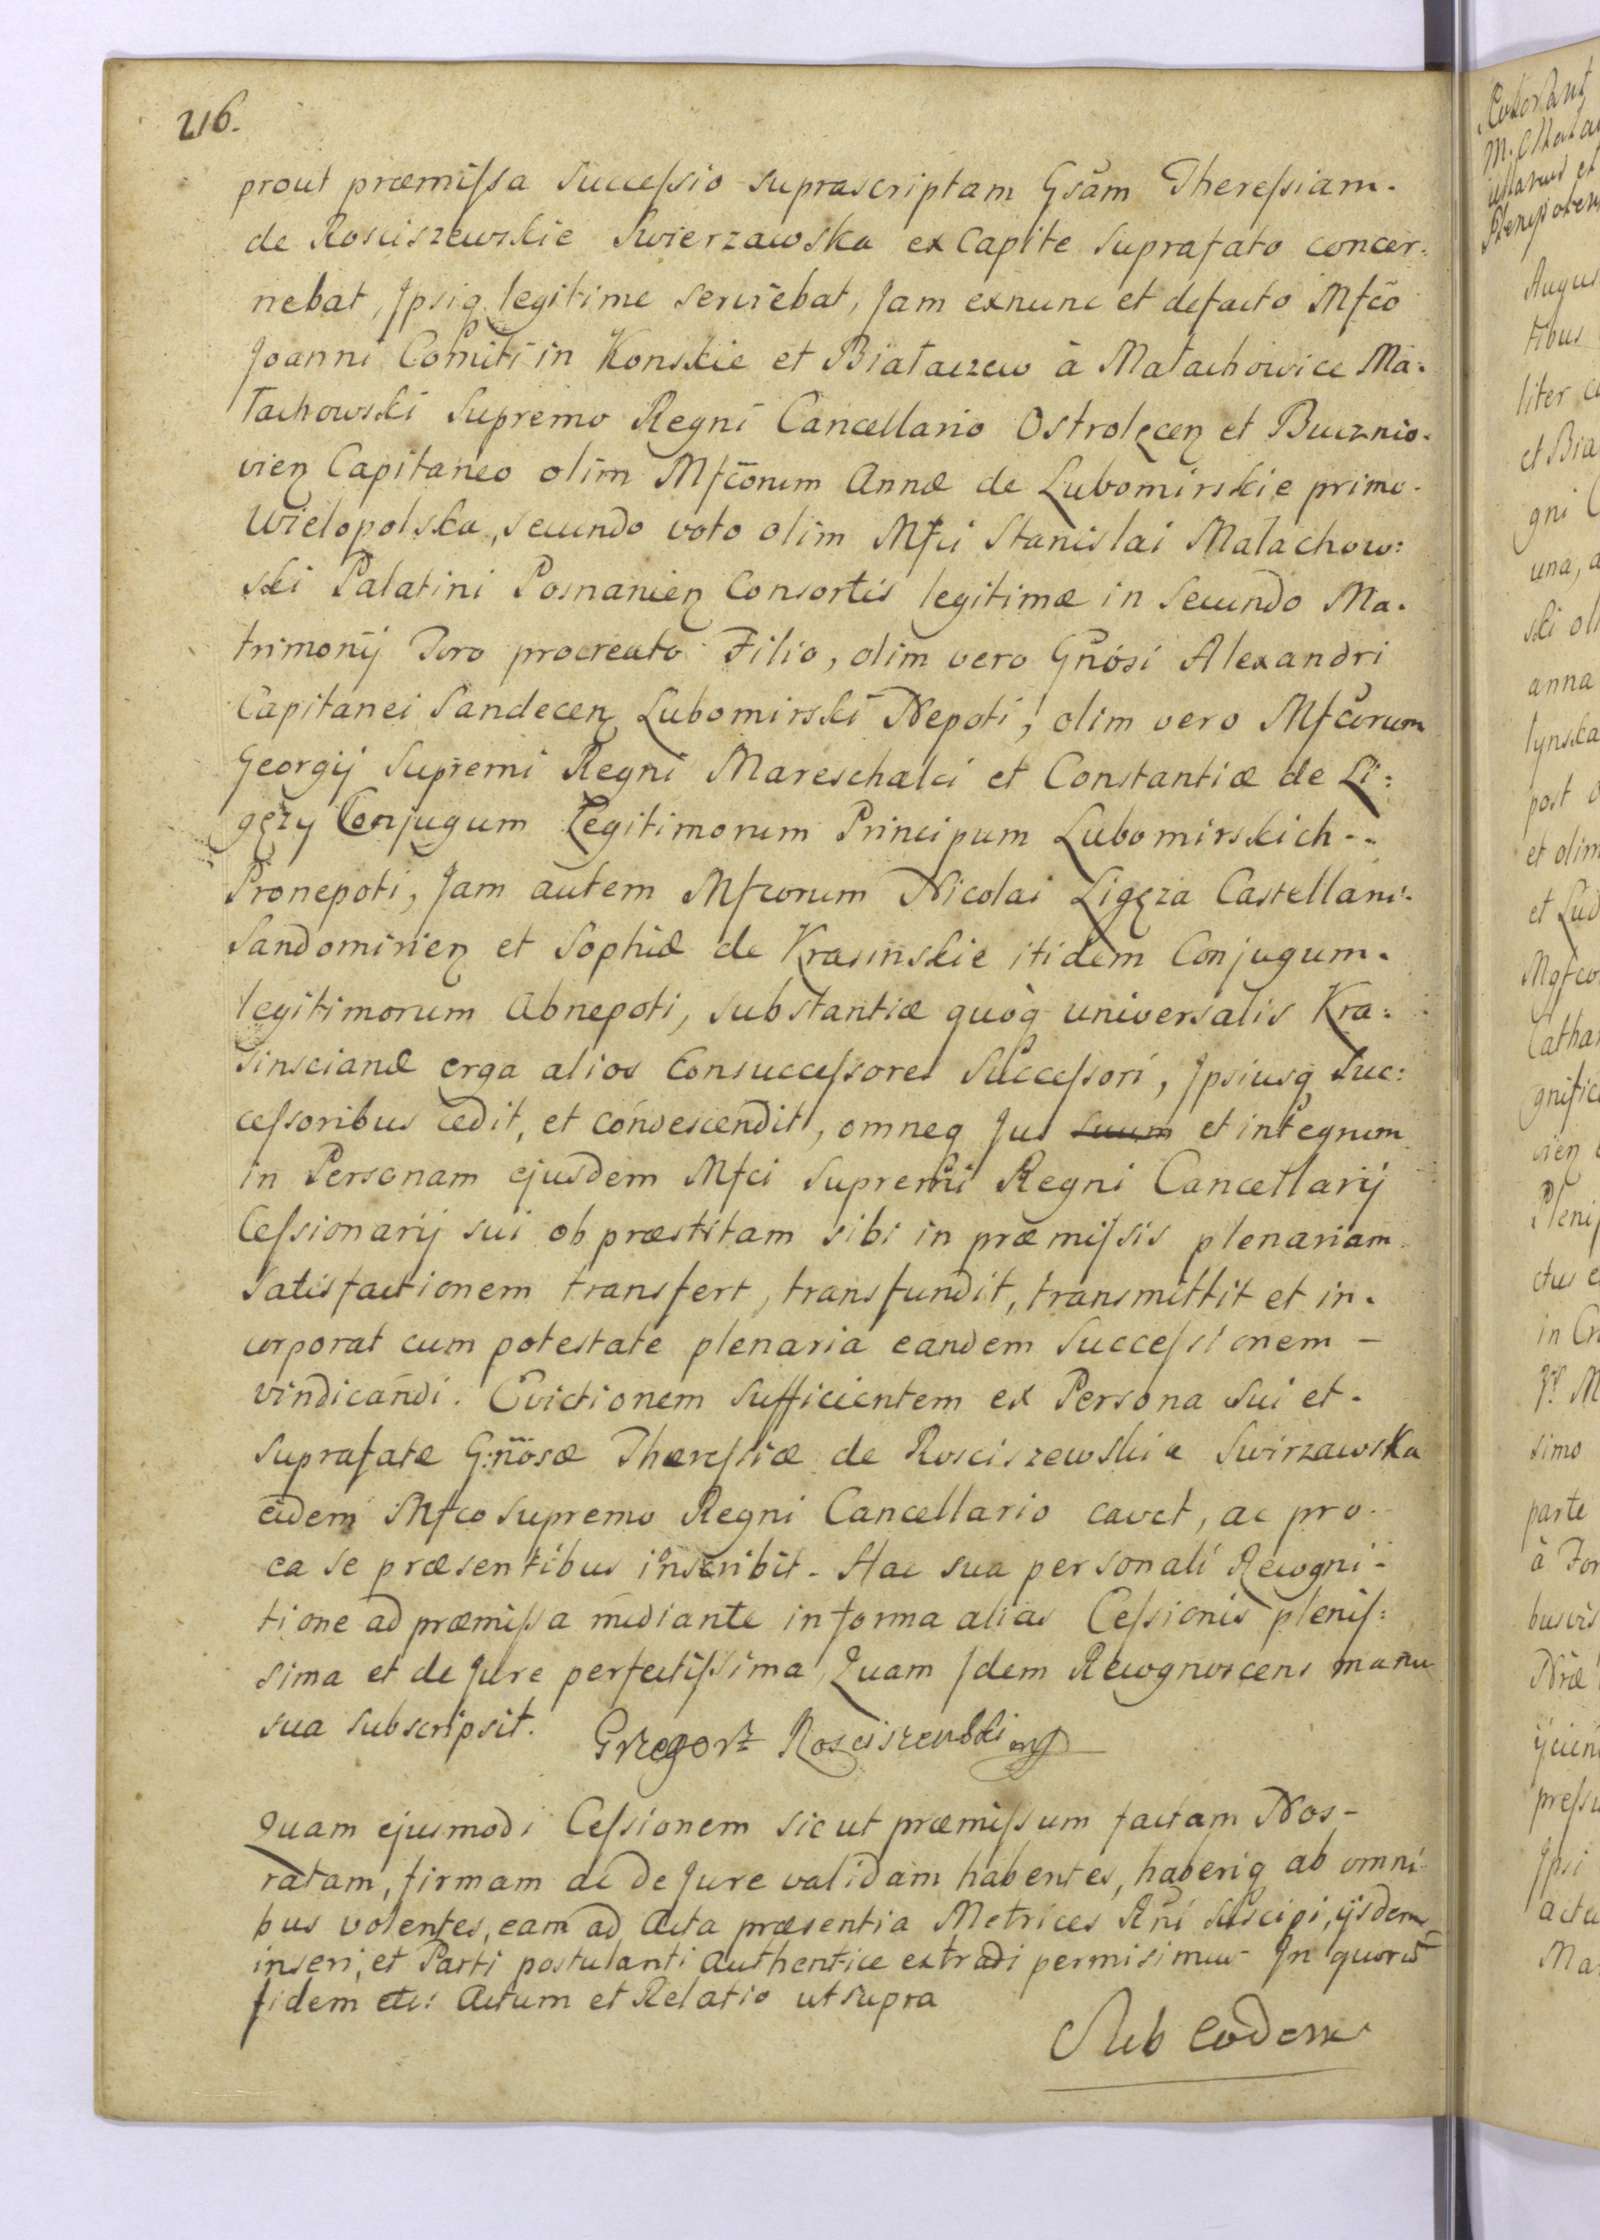 216.
prout præmissa Successio suprascriptam Gsãm Theressiam.
de Rosciszewskie Swierzawska ex Capite suprafato concer:
nebat, Jpsiq legitime serviebat, Jam exnunc et defacto Mfco
Joanni Comiti in Konskie et Białaczew à Małachowice Ma.
łachowski Supremo Regni Cancellario Ostrolęcen et Bucznio.
vien Capitaneo olim Mfcorum Annæ de Lubomirskie primo.
Wielopolska, secundo voto olim Mfci Stanislai Małachow:
ski Palatini Posnanien Consortis legitimæ in Secundo Ma.
trimonij Toro procreato Filio, olim vero Gnosi Alexandri
Capitanei Sandecen Lubomirski Nepoti, olim vero Mfcorum
Georgij Supremi Regni Mareschalci et Constantiæ de Li:
gęzy Conjugum Legitimorum Principum Lubomirskich --
Pronepoti, Jam autem Mfcorum Nicolai Ligęza Castellani.
Sandomirien et Sophiæ de Krasinskie itidem Conjugum.
legitimorum Abnepoti, substantiæ quoq universalis Kra:
sinscianæ erga alios Consuccessores Successori, Jpsiusq Suc:
cessoribus cedit, et condescendit, omneq Jus suum et integrum
in Personam ejusdem Mfci Supremi Regni Cancellarij
Cessionarij sui ob præstitam sibi in præmissis plenariam
Satisfactionem transfert, transfundit, transmittit et in.
corporat cum potestate plenaria eandem Successionem -
vindicandi. Evictionem sufficientem ex Persona sui et.
suprafatæ G:nosæ Theressiæ de Rosciszewskie Swirzawska
eidem Mfco Supremo Regni Cancellario cavet, ac pro.
ea se præsentibus inscribit. Hac sua personali Recogni-
tione ad præmissa mediante in forma alias Cessionis plenis:
sima et de Jure perfectissima, Quam Jdem Recognoscens manu
sua subscripsit. Grzegorz Rosciszewski mp
Quam ejusmodi Cessionem sicut præmissum factam Nos-
ratam, firmam ac de Jure validam habentes, haberiq ab omni
bus volentes, eam ad Acta præsentia Metrices Rñi suscipi, ijsdem
inseri, et Parti postulanti authentice extradi permisimus. Jn quorũ
fidem etc: Actum et Relatio ut supra
Sub eodem
M.
Augus
tibus
liter
et Bia
gni C
una, a
ski oli
anna
lynska
post o
et olim
et Lud
Mgfco
Cathar
gnific
vien
Pleni
ctus e
in Cr
simo
parte
à For
busvis
Nræ
pressu
Jpsi
acta
Ma